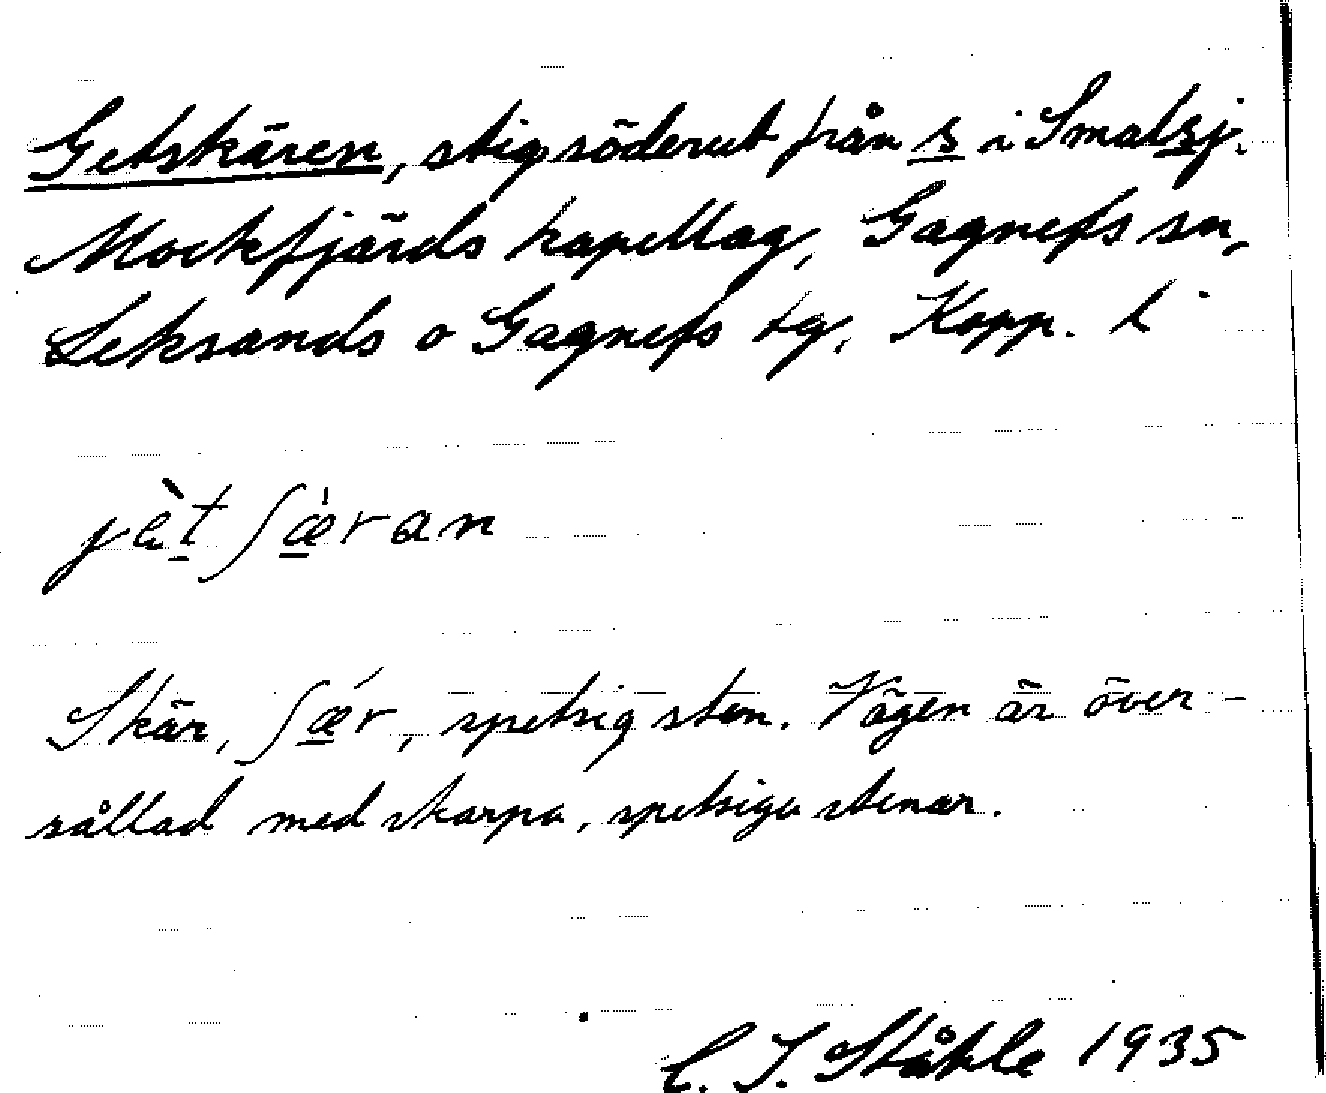 Getskären, stig söderut från s i Smalsj.
Mockfjärds kapellag, Gagnefs sn,
Leksands o Gagnefs tg, Kopp. l
jèt ʃæ̀ran
Skär, ʃǽr, spetsig sten. Vägen är över-
sållad med skarpa, spetsiga stenar.
C. I. Ståhle 1935